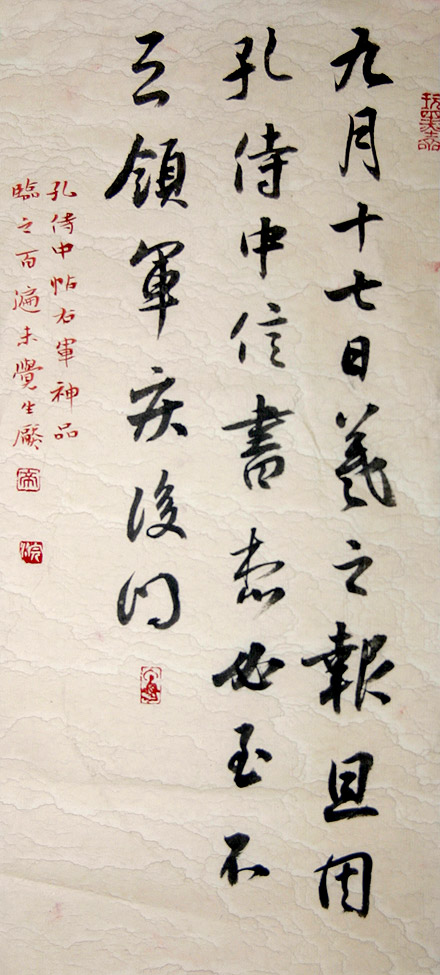 九月十七日羲之報且因
孔侍中信書想必至不
知領軍疾後問
孔侍中帖右軍神品
臨之百遍未覺生厭